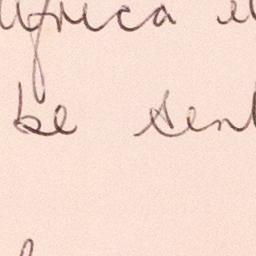 Africa
be sent